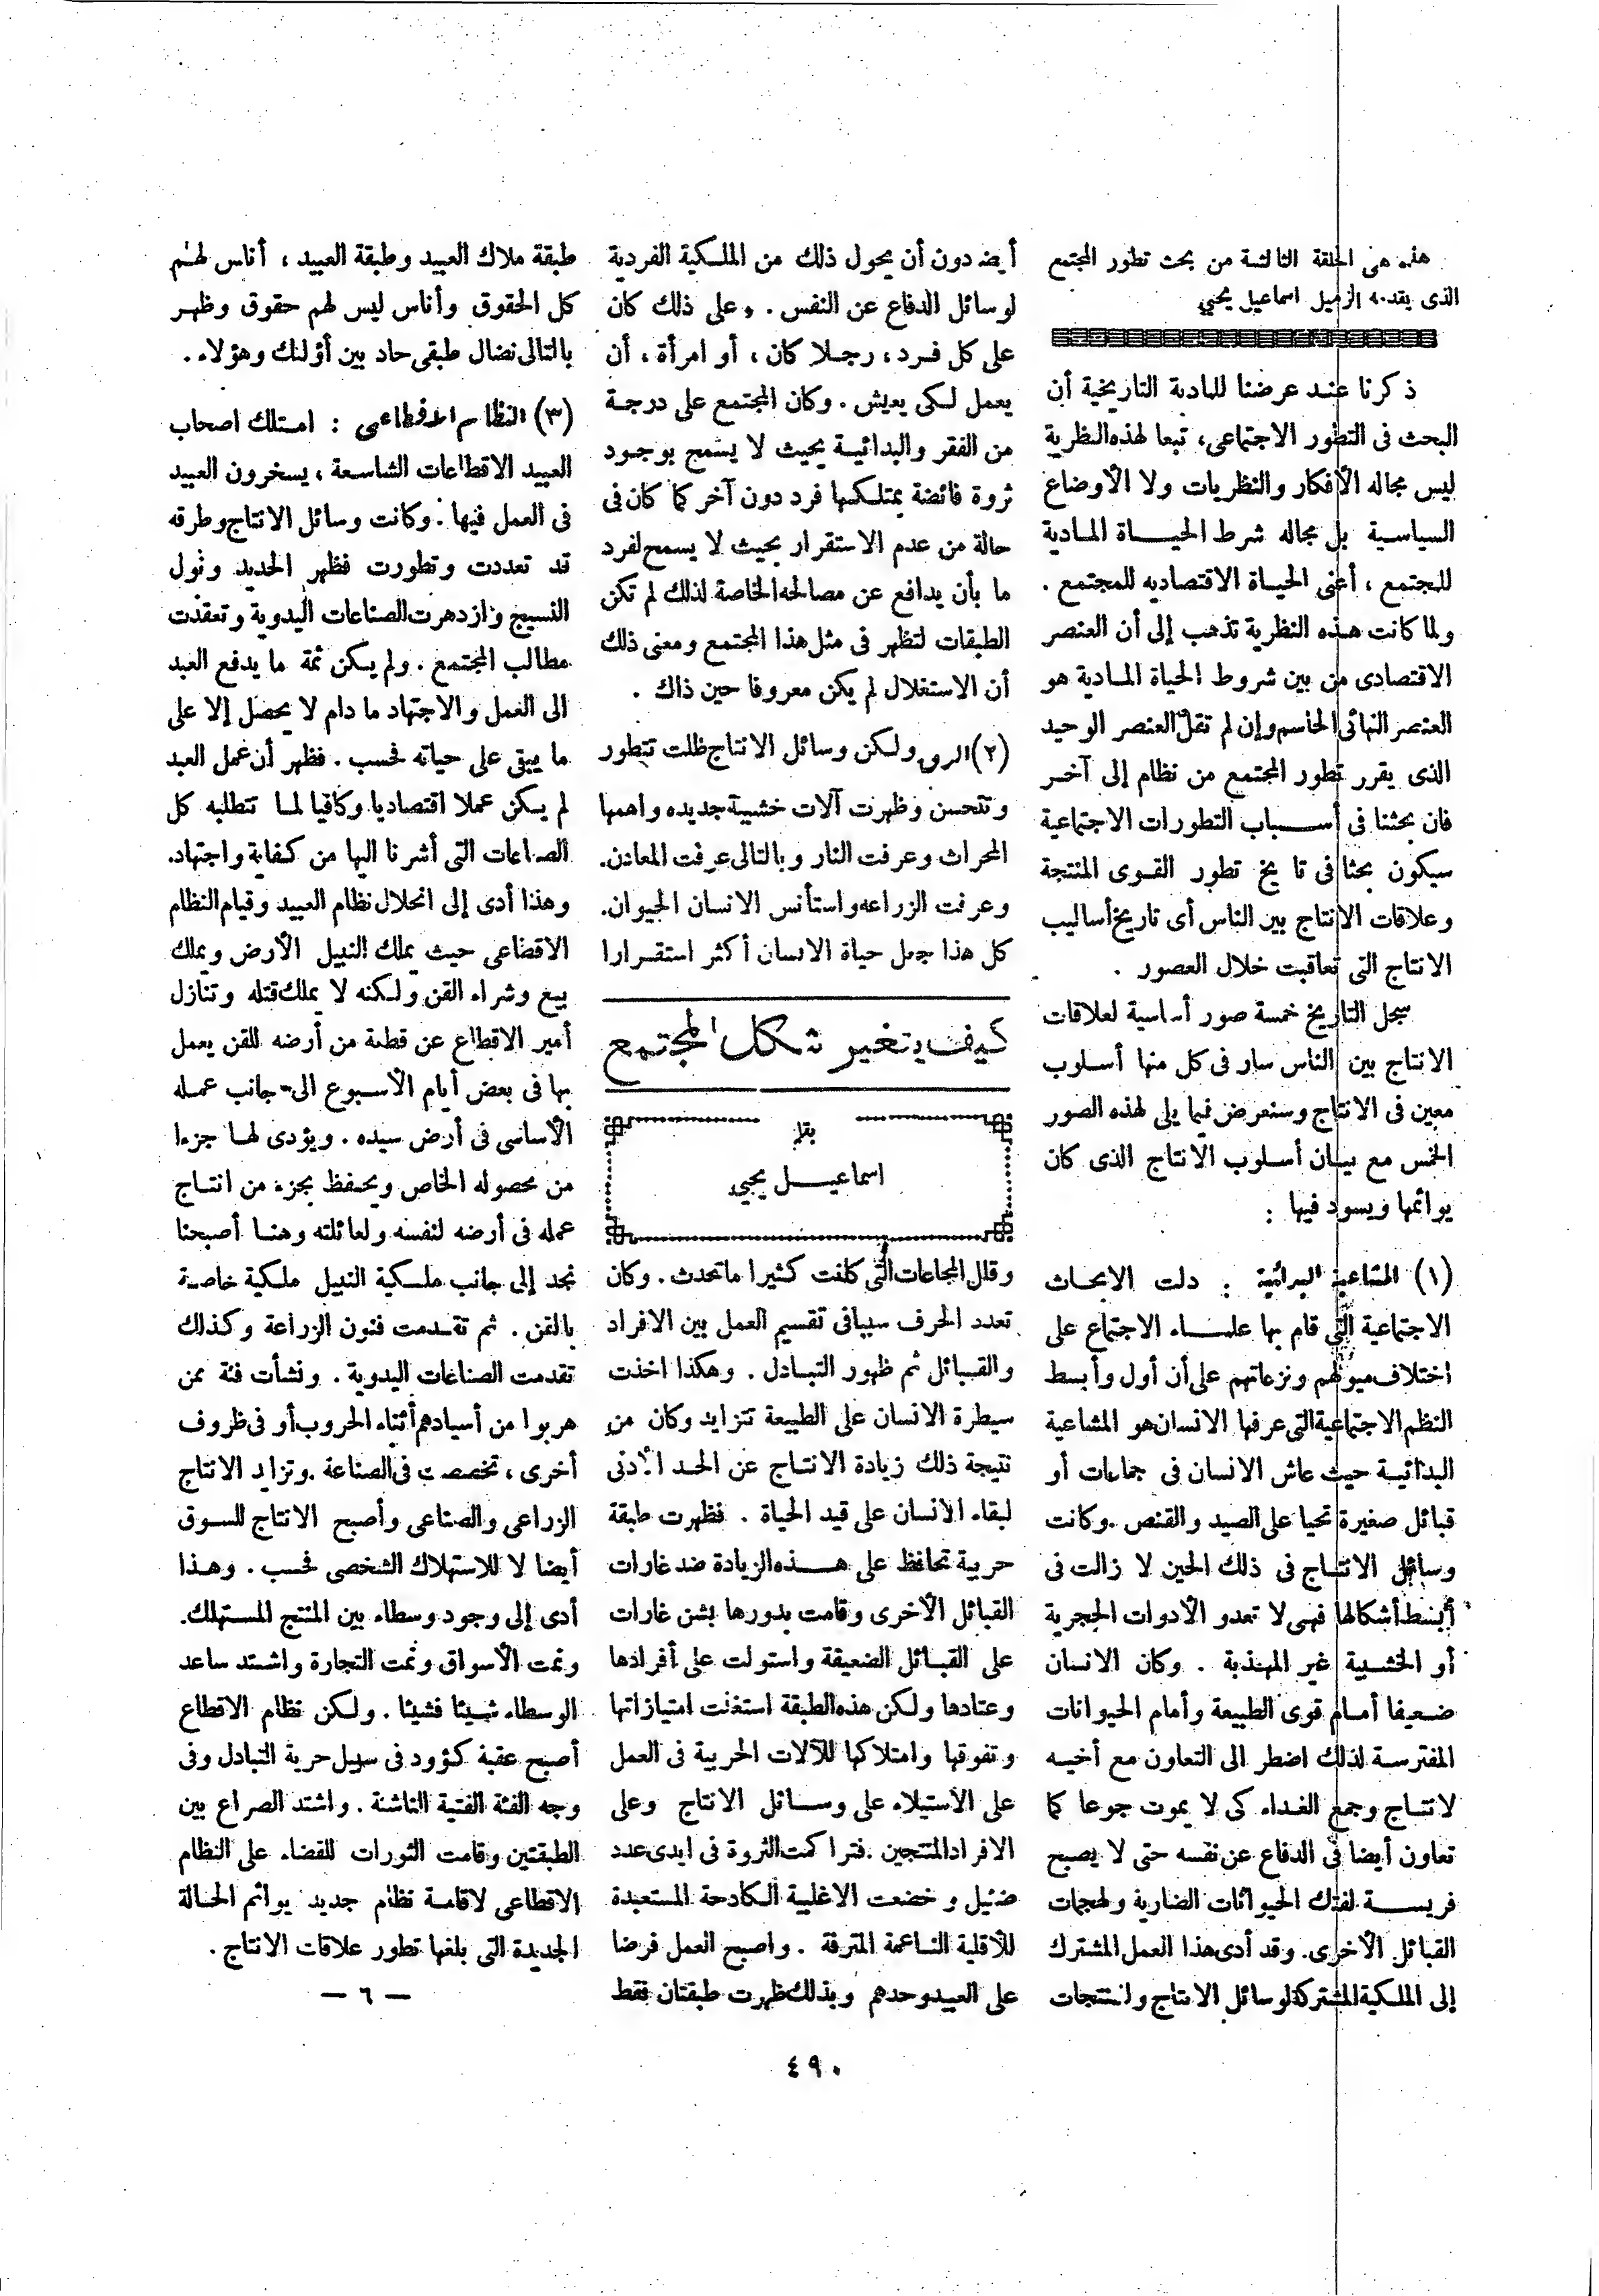 هذه هى الحلقة الثالثة من بحث تطور المجتمع
الذى يقدمه الزميل اسماعيل يحيي
ذكرنا عند عرضنا للمادية التاريخية أن
البحث فى التطور الاجتماعى، تبعا لهذه النظرية
ليس مجاله الأفكار والنظريات ولا الأوضاع
السياسية بل مجاله شرط الحياة المادية
للمجتمع ، أعنى الحياة الاقتصاديه للمجتمع .
ولما كانت هذه النظرية تذهب إلى أن العنصر
الاقتصادى من بين شروط الحياة المادية هو
العنصر النهائى الحاسم وإن لم تقل العنصر الوحيد
الذى يقرر تطور المجتمع من نظام إلى آخر
فان بحثنا فى أسباب التطورات الاجتماعية
سيكون بحثا فى تا يخ تطور القوى المنتجة
وعلاقات الانتاج بين الناس أى تاريخ أساليب
الانتاج التى تعاقبت خلال العصور .
سجل التاريخ خمسة صور أساسية لعلاقات
الانتاج بين الناس سار فى كل منها أسلوب
معين فى الانتاج وسنعرض فيما يلى لهذه الصور
الخمس مع بيان أسلوب الانتاج الذى كان
يوائمها ويسود فيها :
(١) المشاعية البدائية : دلت الابحاث
الاجتماعية التى قام بها علماء الاجتماع على
اختلاف ميولهم ونزعاتهم على أن أول وأبسط
النظم الاجتماعية التى عرفها الانسان هو المشاعية
البدائية حيث عاش الانسان فى جماعات أو
قبائل صغيرة تحيا على الصيد والقنص . وكانت
وسائل الانتاج فى ذلك الحين لا زالت فى
أبسط أشكالها فهى لا تعدو الأدوات الحجرية
أو الخشبية غير المهذبة . وكان الانسان
ضعيفا أمام قوى الطبيعة وأمام الحيوانات
المفترسة لذلك اضطر الى التعاون مع أخيه
لانتاج وجمع الغداء كى لا يموت جوعا كما
تعاون أيضا فى الدفاع عن نفسه حتى لا يصبح
فريسة لفتك الحيوانات الضارية ولهجمات
القبائل الأخرى. وقد أدى هذا العمل المشترك
إلى الملكية المشتركة لوسائل الانتاج والمنتجات
أيضـ دون أن يحول ذلك من الملكية الفردية
لوسائل الدفاع عن النفس . وعلى ذلك كان
على كل فرد ، رجلا كان ، أو امرأة ، أن
يعمل لكى يعيش . وكان المجتمع على درجة
من الفقر والبدائية بحيث لا يسمح بوجود
ثروة فائضة يمتلكها فرد دون آخر كما كان فى
حالة من عدم الاستقرار بحيث لا يسمح لفرد
ما بأن يدافع عن مصالحه الخاصة لذلك لم تكن
الطبقات لتظهر فى مثل هذا المجتمع ومعنى ذلك
أن الاستغلال لم يكن معروفا حين ذاك .
(٢) الرق ولكن وسائل الانتاج ظلت تتطور
وتتحسن وظهرت آلات خشبية جديده واهمها
المحراث وعرفت النار وبالتالى عرفت المعادن.
وعرفت الزراعه واستأنس الانسان الحيوان.
كل هذا جعل حياة الانسان أكثر استقرارا
كيف يتغير شكل المجتمع
بقلم
اسماعيل يحيي
وقال المجاعات التى كانت كثيرا ما تحدث . وكان
تعدد الحرف سببا فى تقسيم العمل بين الافراد
والقبائل ثم ظهور التبادل . وهكذا اخذت
سيطرة الانسان على الطبيعة تتزايد وكان من
نتيجة ذلك زيادة الانتاج عن الحد الأدنى
لبقاء الانسان على قيد الحياة . فظهرت طبقة
حربية تحافظ على هذه الزيادة ضد غارات
القبائل الأخرى وقامت بدورها بشن غارات
على القبائل الضعيقة واستولت على أفرادها
وعتادها ولكن هذه الطبقة استغلت امتيازاتها
وتفوقها وامتلاكها للآلات الحربية فى العمل
على الأستيلاء على وسائل الانتاج وعلى
الافراد المنتجين . فتراكمت الثروة فى ايدى عدد
ضئيل وخضعت الاغلبية الكادحة المستعبدة
للأقلية الناعمة المترفة . واصبح العمل فرضا
على العبيد وحدهم وبذلك ظهرت طبقتان فقط
طبقة ملاك العبيد وطبقة العبيد ، أناس لهم
كل الحقوق وأناس ليس لهم حقوق وظهر
بالتالى نضال طبقى حاد بين أولئك وهؤلاء .
(٣) النظام الاقطاعى : امتلك اصحاب
العبيد الاقطاعات الشاسعة ، يسخرون العبيد
فى العمل فيها . وكانت وسائل الانتاج وطرقه
قد تعددت وتطورت فظهر الحديد ونول
النسيج وازدهرت الصناعات اليدوية وتعقدت
مطالب المجتمع . ولم يكن ثمة ما يدفع العبد
الى العمل والاجتهاد ما دام لا يحصل إلا على
ما يبقى على حياته فحسب . فظهر أن عمل العبد
لم يكن عملا اقتصاديا وكافيا لما تتطلبه كل
الصناعات التى أشرنا اليها من كفاية واجتهاد.
وهذا أدى إلى انحلال نظام العبيد وقيام النظام
الاقطاعى حيث يملك النبيل الأرض ويملك
بيع وشراء القن ولكنه لا يملك قتله وتنازل
أمير الاقطاع عن قطعة من أرضه للقن يعمل
بها فى بعض أيام الأسبوع الى جانب عمله
الأساسى فى أرض سيده . ويؤدى لها جزءا
من محصوله الخاص ويحفظ بجزء من انتاج
عمله فى أرضه لنفسه ولعائلته وهنا أصبحنا
نجد إلى جانب ملكية النبيل ملكية خاصة
بالقن . ثم تقدمت فنون الزراعة وكذلك
تقدمت الصناعات اليدوية . ونشأت فئة ممن
هربوا من أسيادهم أثناء الحروب أو فى ظروف
أخرى ، تخصصت فى الصناعة . وتزايد الانتاج
الزراعى والصناعى وأصبح الانتاج للسوق
أيضا لا للاستهلاك الشخصى فحسب . وهذا
أدى إلى وجود وسطاء بين المنتج والمستهلك.
ونمت الأسواق ونمت التجارة واشتد ساعد
الوسطاء شيئا فشيئا . ولكن نظام الاقطاع
أصبح عقبة كؤود فى سبيل حرية التبادل وفى
وجه الفئة الفتية الناشئة . واشتد الصراع بين
الطبقتين وقامت الثورات للقضاء على النظام
الاقطاعى لاقامة نظام جديد يوائم الحالة
الجديدة التى بلغها تطور علاقات الانتاج .
— ٦ —
٤٩٠